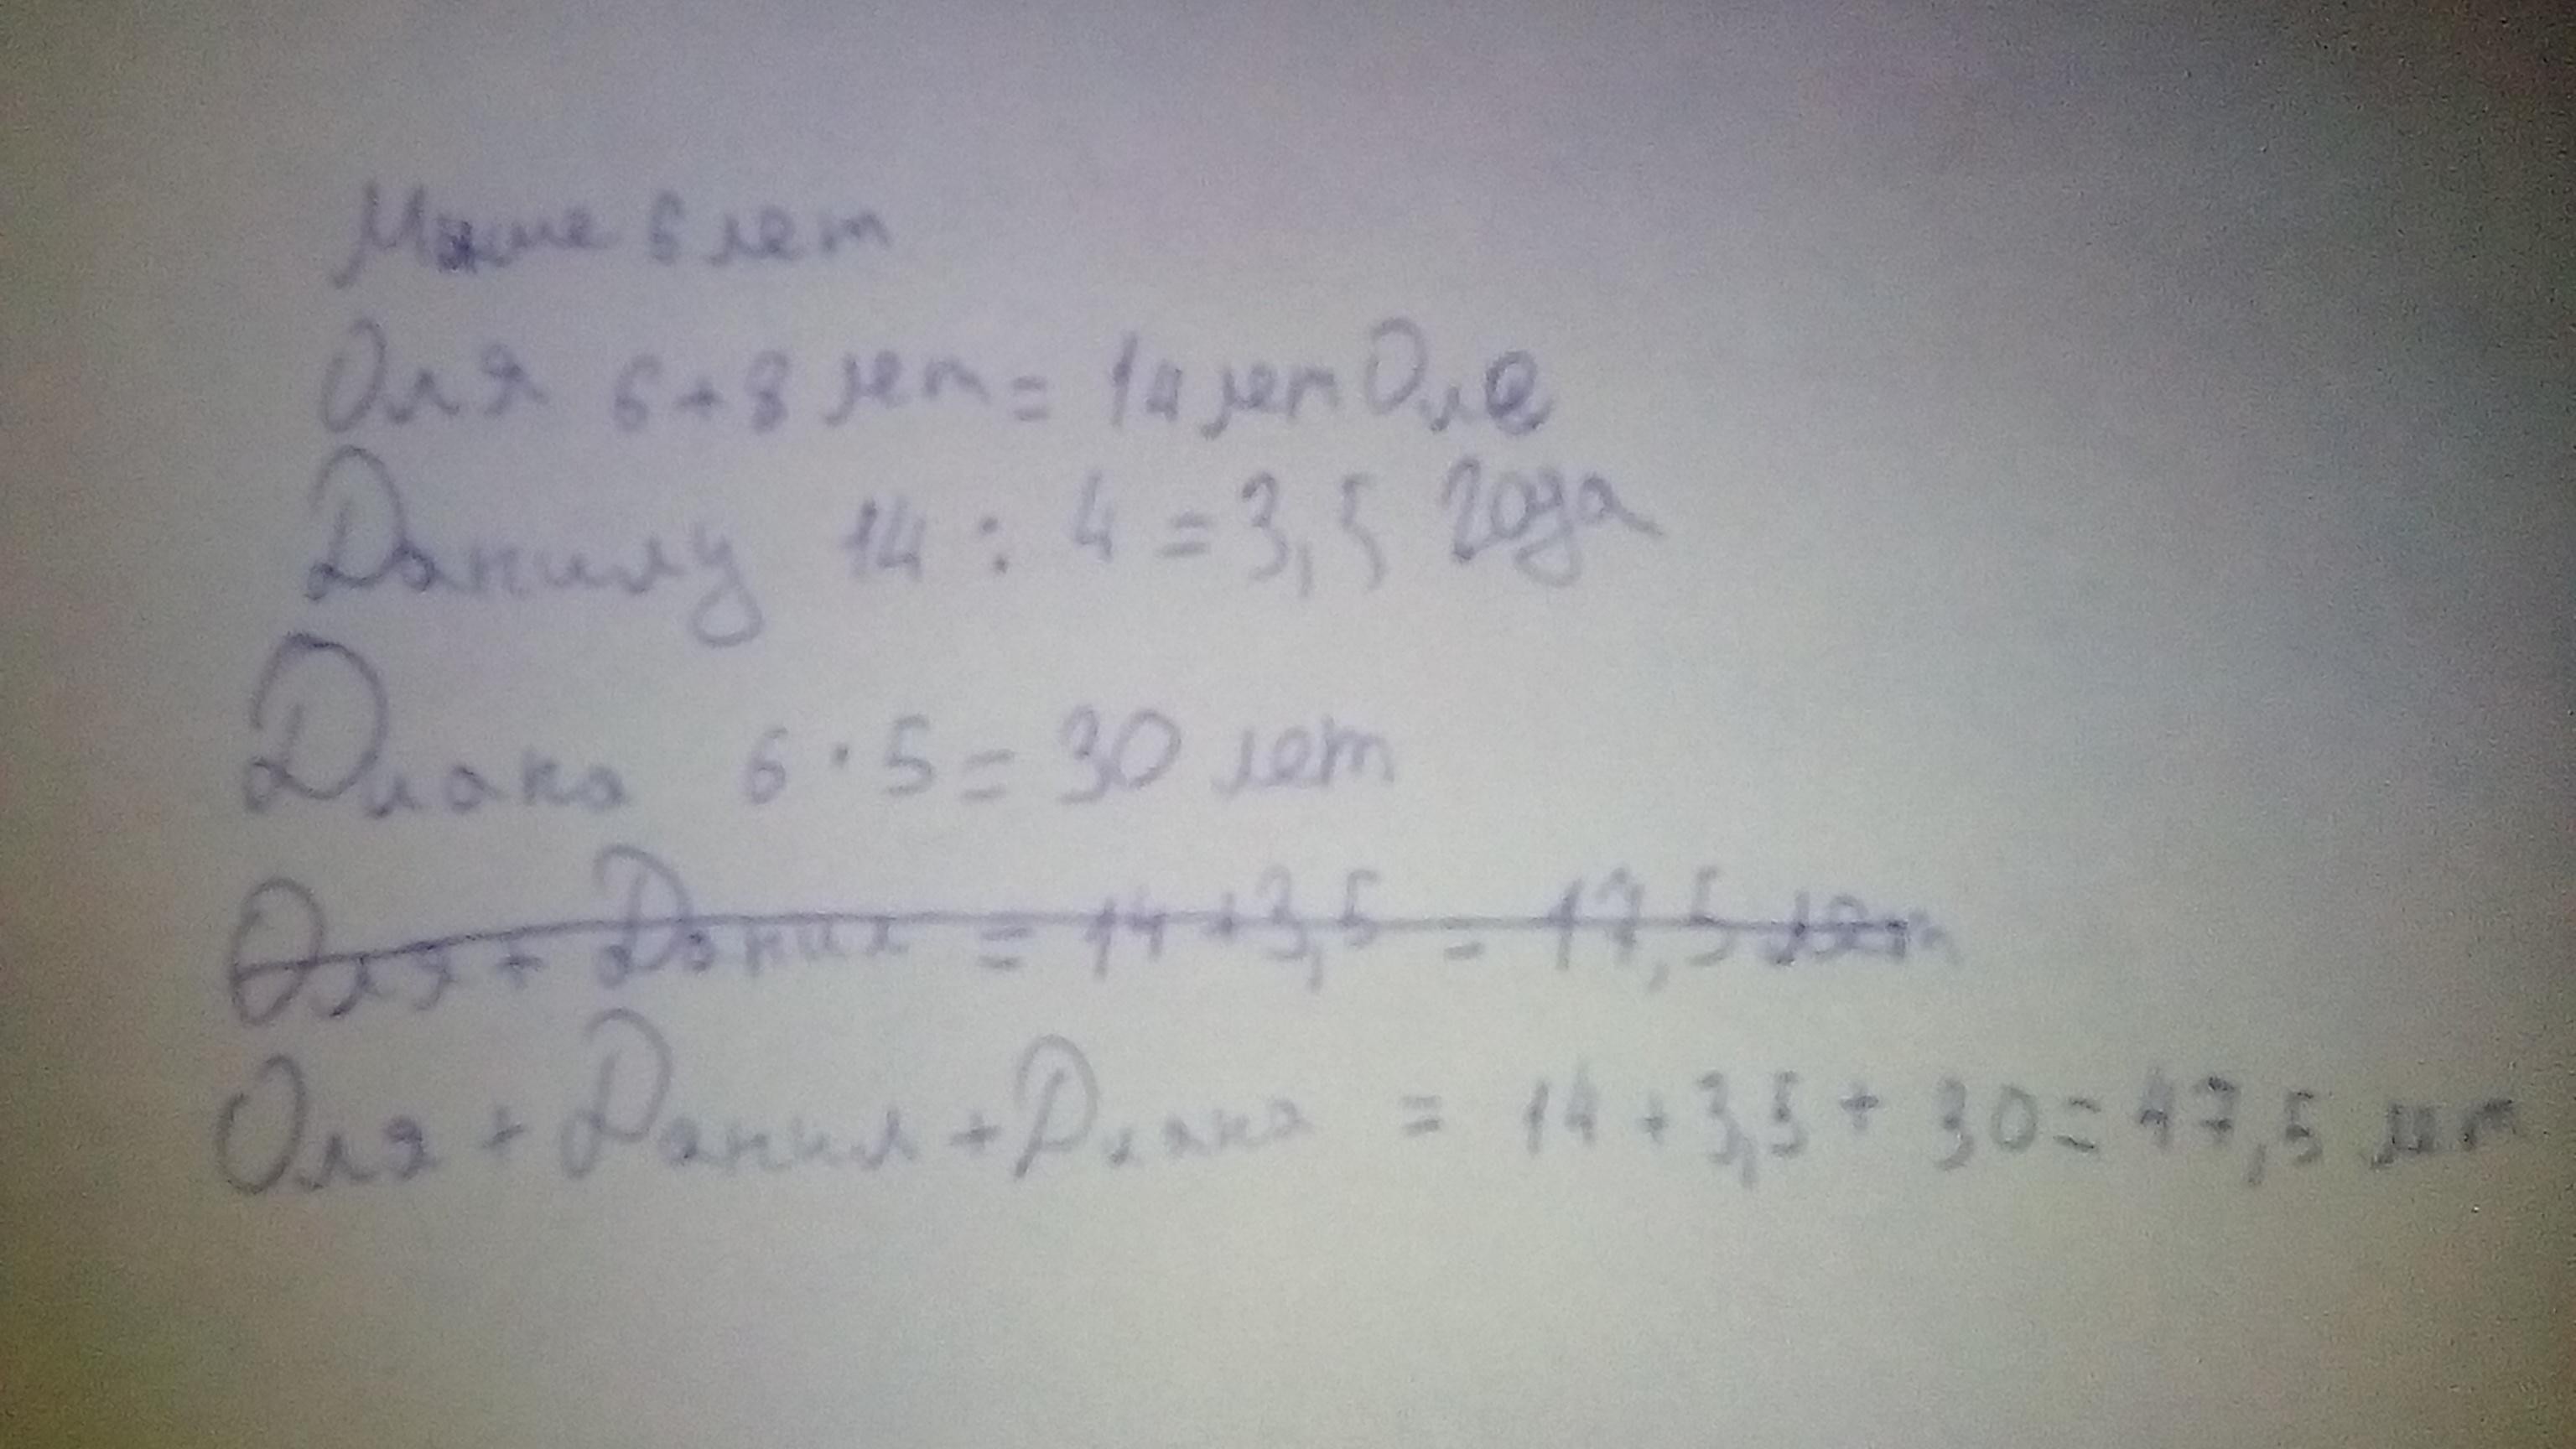 Маше 6 лет
Оля 6+8 лет = 14 лет Оле
Данилу 14 : 4 = 3,5 года
Диана 6 · 5 = 30 лет
Оля + Данил = 14 + 3,5 = 17,5 лет
Оля + Данил + Диана = 14 + 3,5 + 30 = 47,5 лет